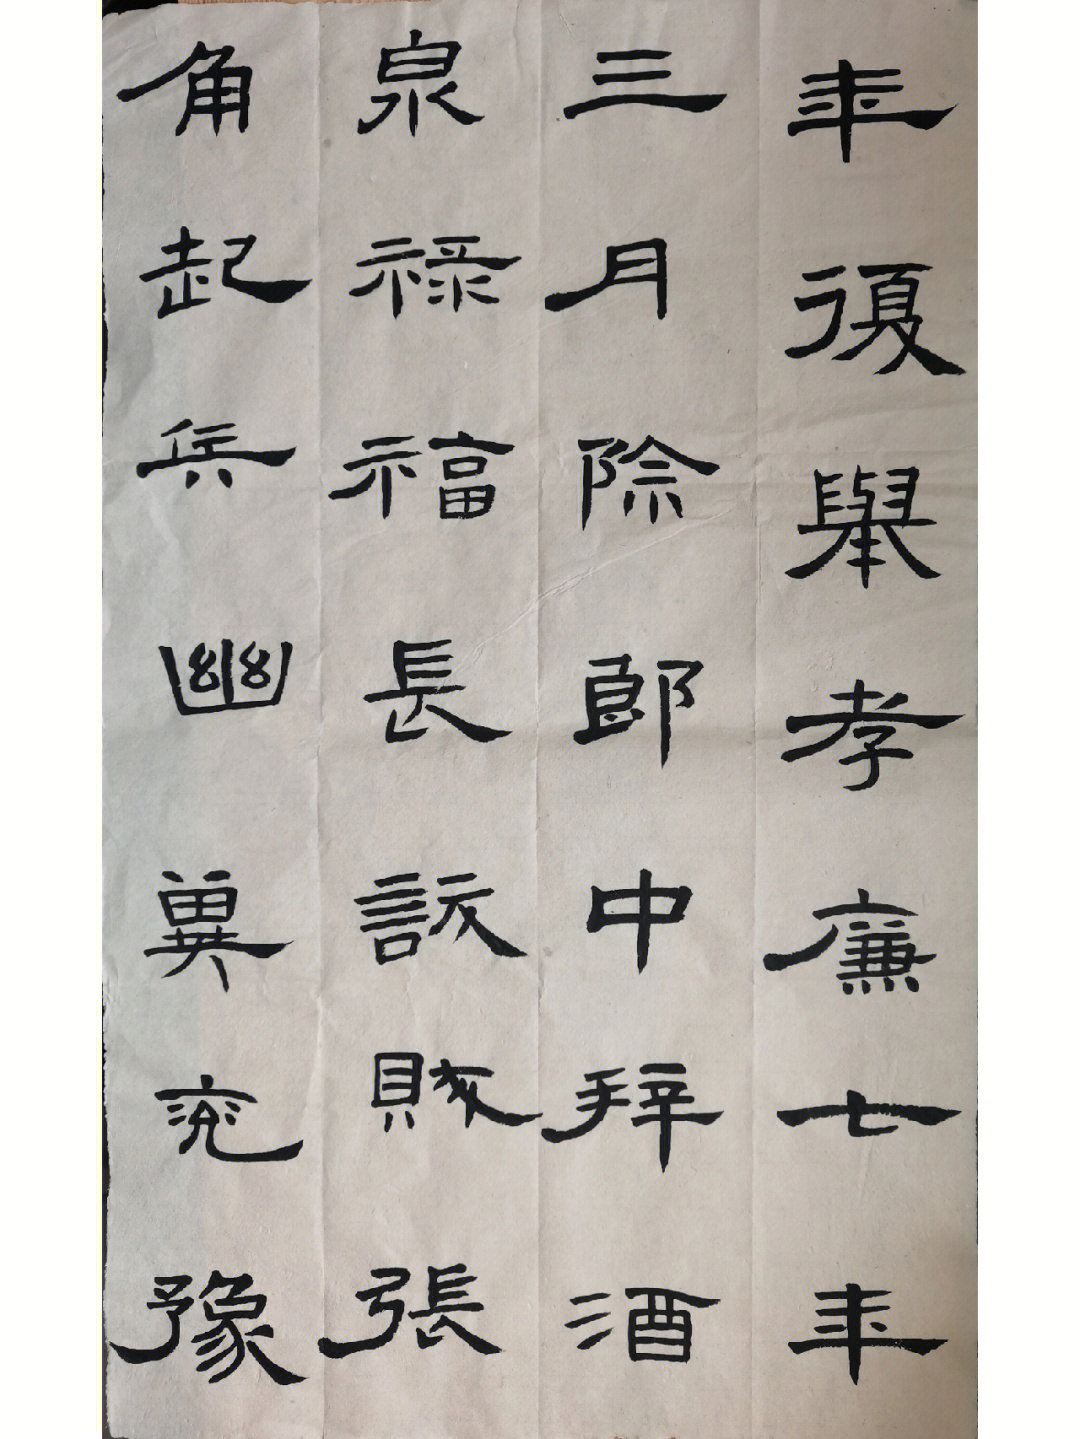 年復舉孝廉七年
三月除郎中拜酒
泉祿福長訞賊張
角起兵幽冀兗豫